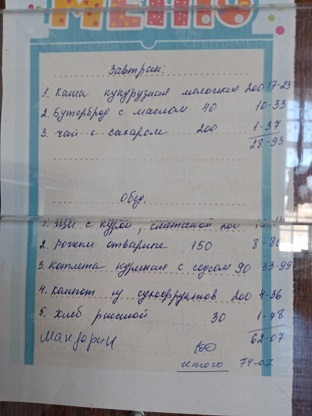 МЕНЮ
Завтрак:
1. Каша кукурузная молочная 200 17-23
2. Бутерброд с маслом 40 10-33
3. Чай с сахаром 200 1-37
28-93
Обед.
1. Щи с курой, сметаной
2. рожки отварные 150
3. Котлета куриная с соусом 90 33-99
4. Компот из сухофруктов 200 4-36
5. хлеб ржаной 30 1-78
62-07
Мандарин 100
итого 74-07